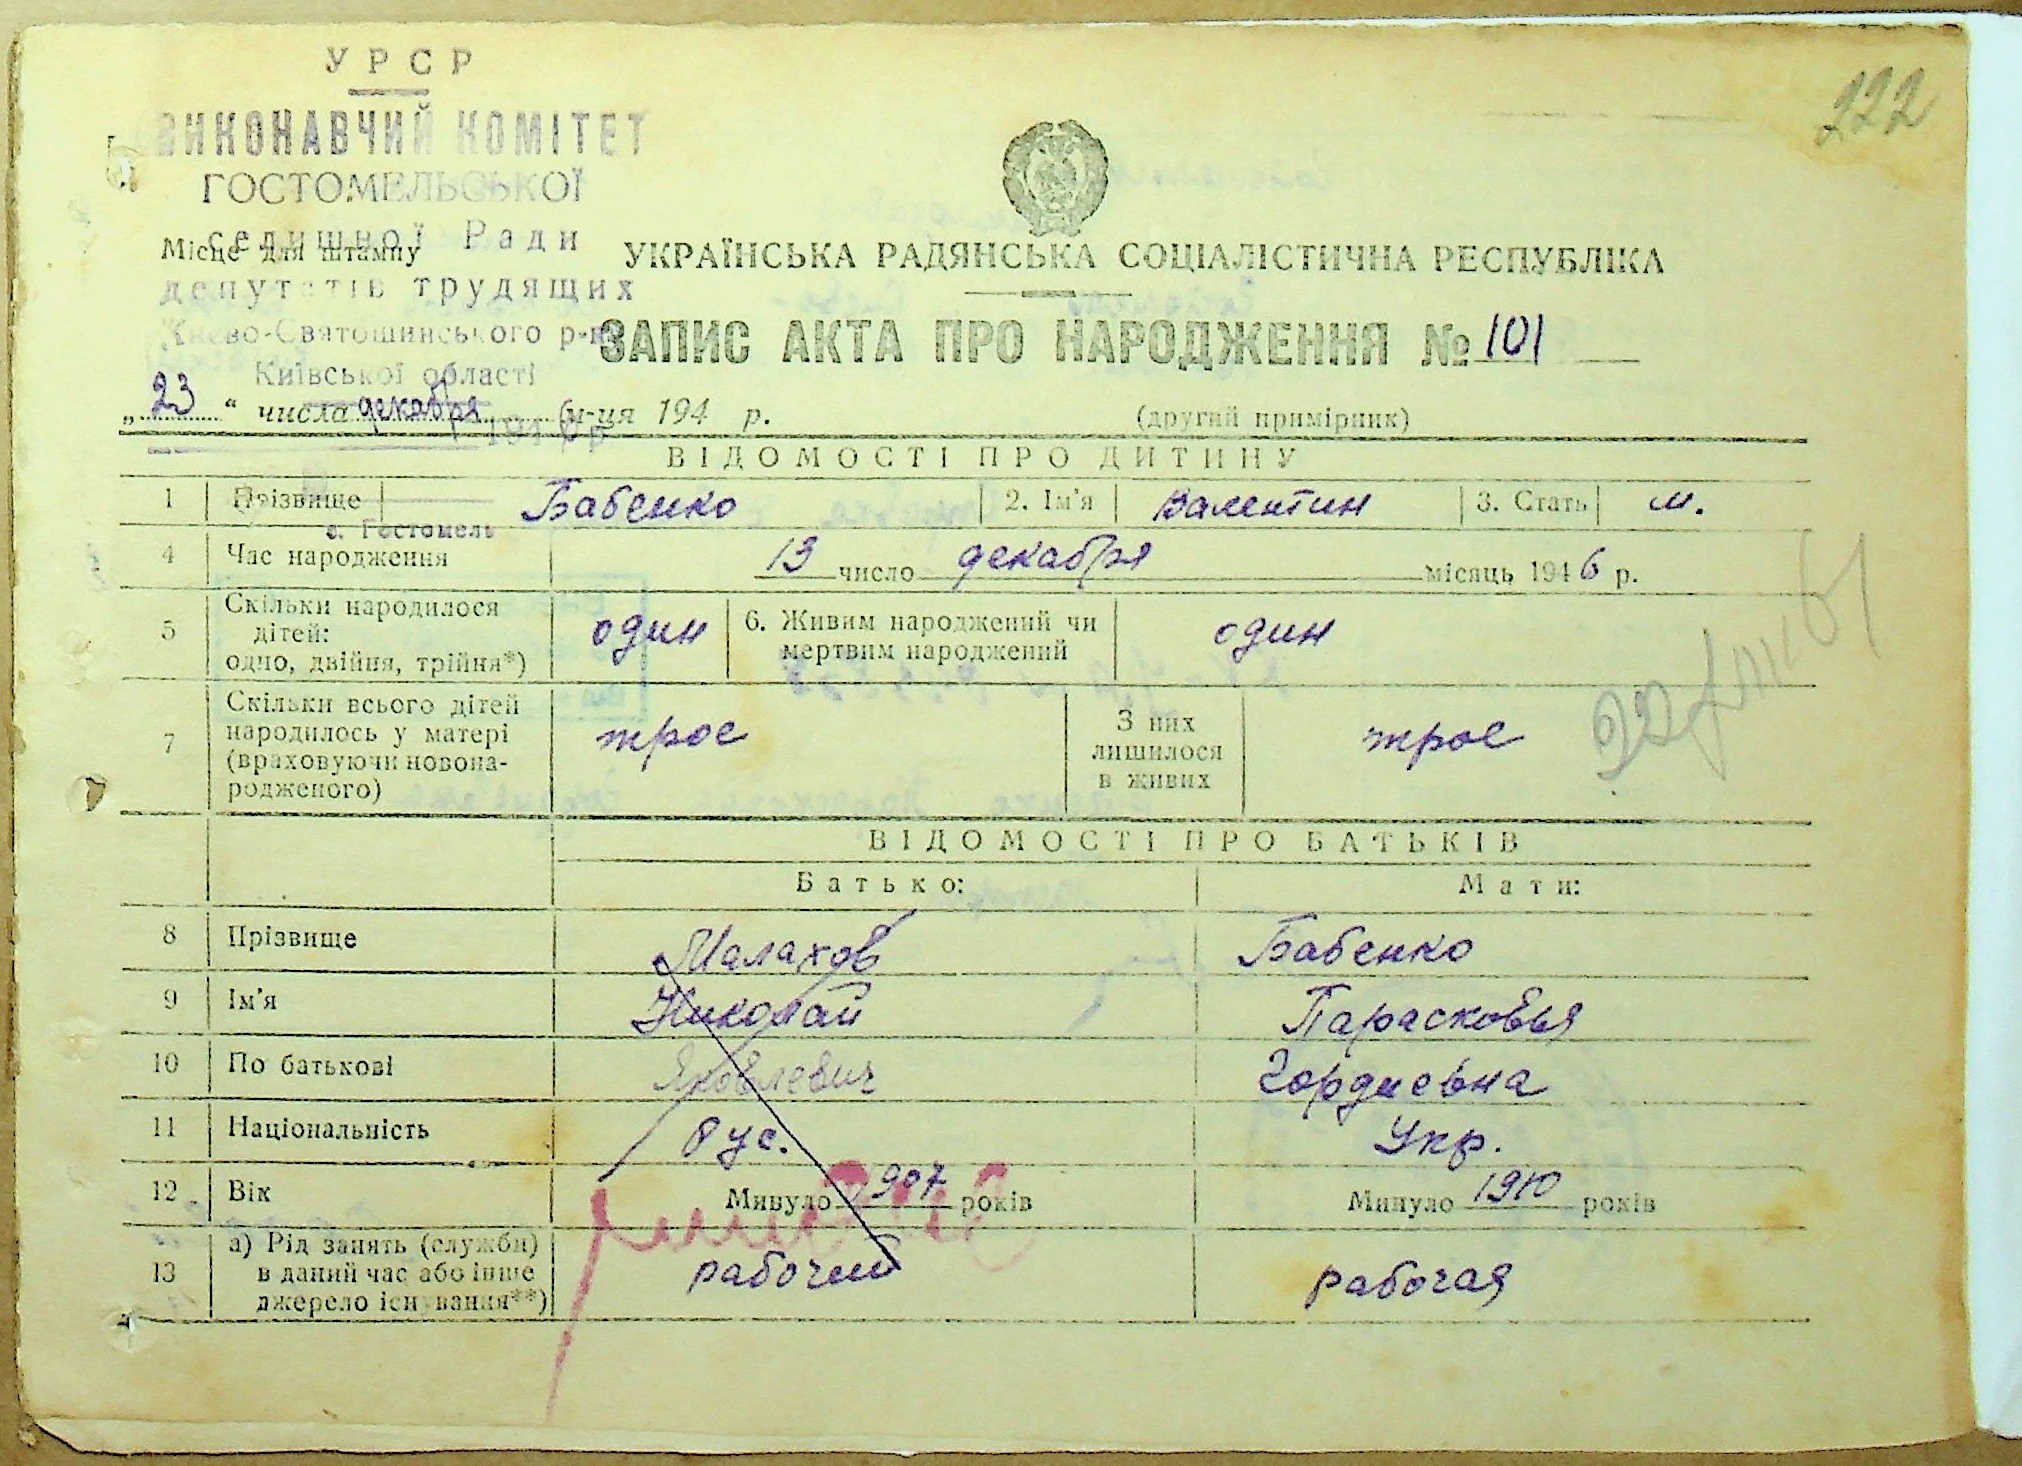 222
УРСР
ВИКОНАВЧИЙ КОМІТЕТ
ГОСТОМЕЛЬСЬКОЇ
селищної Ради
Місце для штампу
депутатів трудящих
Києво-Святошинського р-ну
Київської області
с. Гостомель
УКРАЇНСЬКА РАДЯНСЬКА СОЦІАЛІСТИЧНА РЕСПУБЛІКА
ЗАПИС АКТА ПРО НАРОДЖЕННЯ № 101
„23“ числа декабря м-ця 194 6 р.
(другий примірник)
ВІДОМОСТІ ПРО ДИТИНУ
1 Прізвище Бабенко 2. Ім'я Валентин 3. Стать м.
4 Час народження 13 число декабря місяць 1946 р.
5 Скільки народилося дітей: одно, двійня, трійня*) один 6. Живим народжений чи мертвим народжений один
7 Скільки всього дітей народилось у матері (враховуючи новонародженого) трое З них лишилося в живих трое
ВІДОМОСТІ ПРО БАТЬКІВ
Батько: Мати:
8 Прізвище Малахов Бабенко
9 Ім'я Николай Парасковья
10 По батькові Яковлевич Гордиевна
11 Національність Рус. Укр.
12 Вік Минуло 1907 років Минуло 1910 років
13 а) Рід занять (служби) в даний час або інше джерело існування**) рабочий рабочая